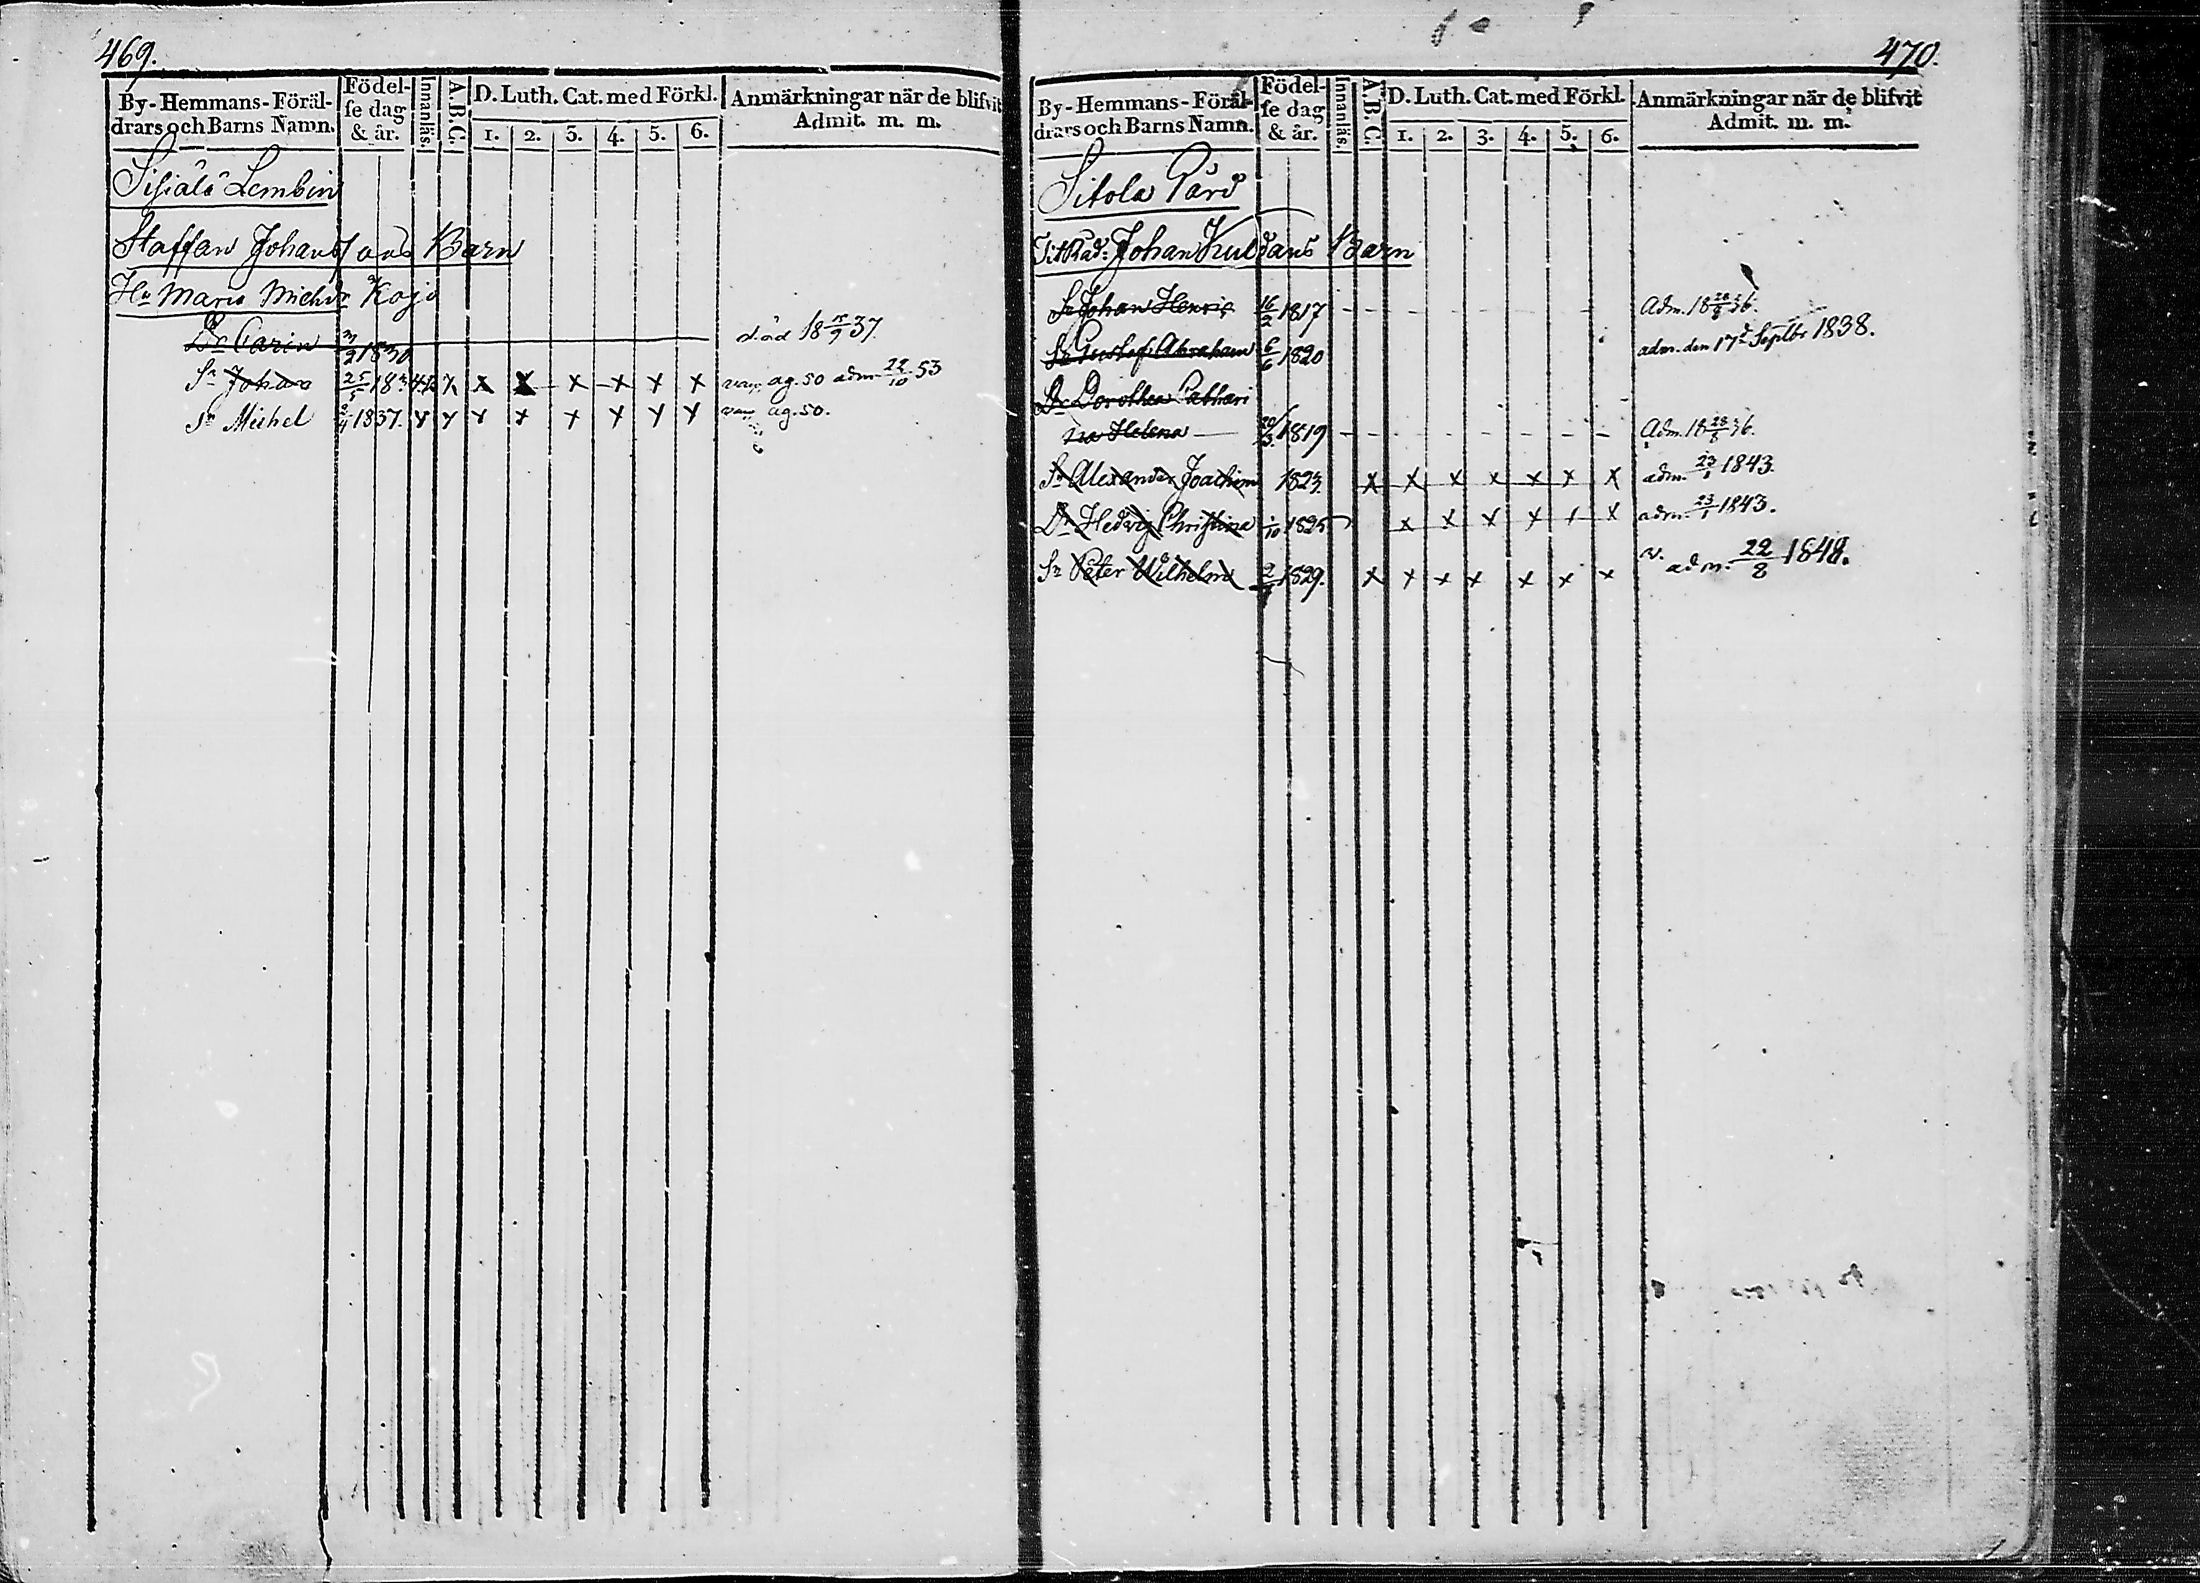 469.
By-Hemmans-Föräl-
drars och Barns Namn.
Födel-
se dag
& år.
Innanläs.
A.B.C.
D. Luth. Cat. med Förkl.
1. 2. 3. 4. 5. 6.
Anmärkningar när de blifvit
Admit. m. m.
Lembin
Staffan Johanssons Barn
Hu Maria Kojo
Dr Carin 1830 död 18 15/9 37.
Sn Johan 25/5 18 x x x x x x ag. 50 adm 22/10 53
Sn Michel 2/4 1837. x x x x x x x x ag. 50.
470.
By-Hemmans-Föräl-
drars och Barns Namn.
Födel-
se dag
& år.
Innanläs.
A.B.C.
D. Luth. Cat. med Förkl.
1. 2. 3. 4. 5. 6.
Anmärkningar när de blifvit
Admit. m. m.
Sitola Gård
Tit Råd: Johan Barn
Sn Johan Henric 16/2 1817 - - - - - - - Adm. 18 28/8 36.
Sn Gustaf Abraham 6/6 1820 adm. den 17d Septbr 1838.
Dr Dorothea Cathari
na Helena 20/3 1819 - - - - - - - Adm. 18 28/8 36.
Sn Alexander Joachim 1823. x x x x x x x adm. 23/1 1843.
Dr Hedvig Christina 1/10 1825 x x x x x x adm. 23/1 1843.
Sn Peter Wilhelm 1829. x x x x x x x v. adm. 22/8 1848.